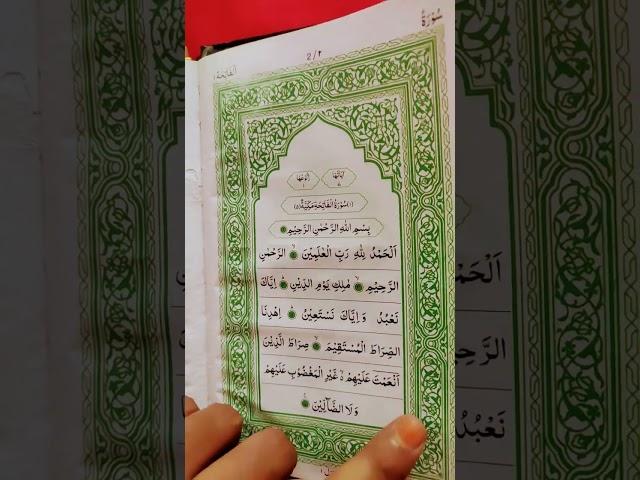 سُوْرَةُ
2/٢
اَلْفَاتِحَة ١
اٰيَاتُهَا
رُكُوْعُهَا ١
(١) سُوْرَةُ الْفَاتِحَةِ مَكِّيَّةٌ (٥)
بِسْمِ اللّٰهِ الرَّحْمٰنِ الرَّحِيْمِ
اَلْحَمْدُ لِلّٰهِ رَبِّ الْعٰلَمِيْنَ الرَّحْمٰنِ
الرَّحِيْمِ مٰلِكِ يَوْمِ الدِّيْنِ اِيَّاكَ
نَعْبُدُ وَ اِيَّاكَ نَسْتَعِيْنُ اِهْدِنَا
الصِّرَاطَ الْمُسْتَقِيْمَ صِرَاطَ الَّذِيْنَ
اَنْعَمْتَ عَلَيْهِمْ غَيْرِ الْمَغْضُوْبِ عَلَيْهِمْ
وَلَا الضَّآلِّيْنَ